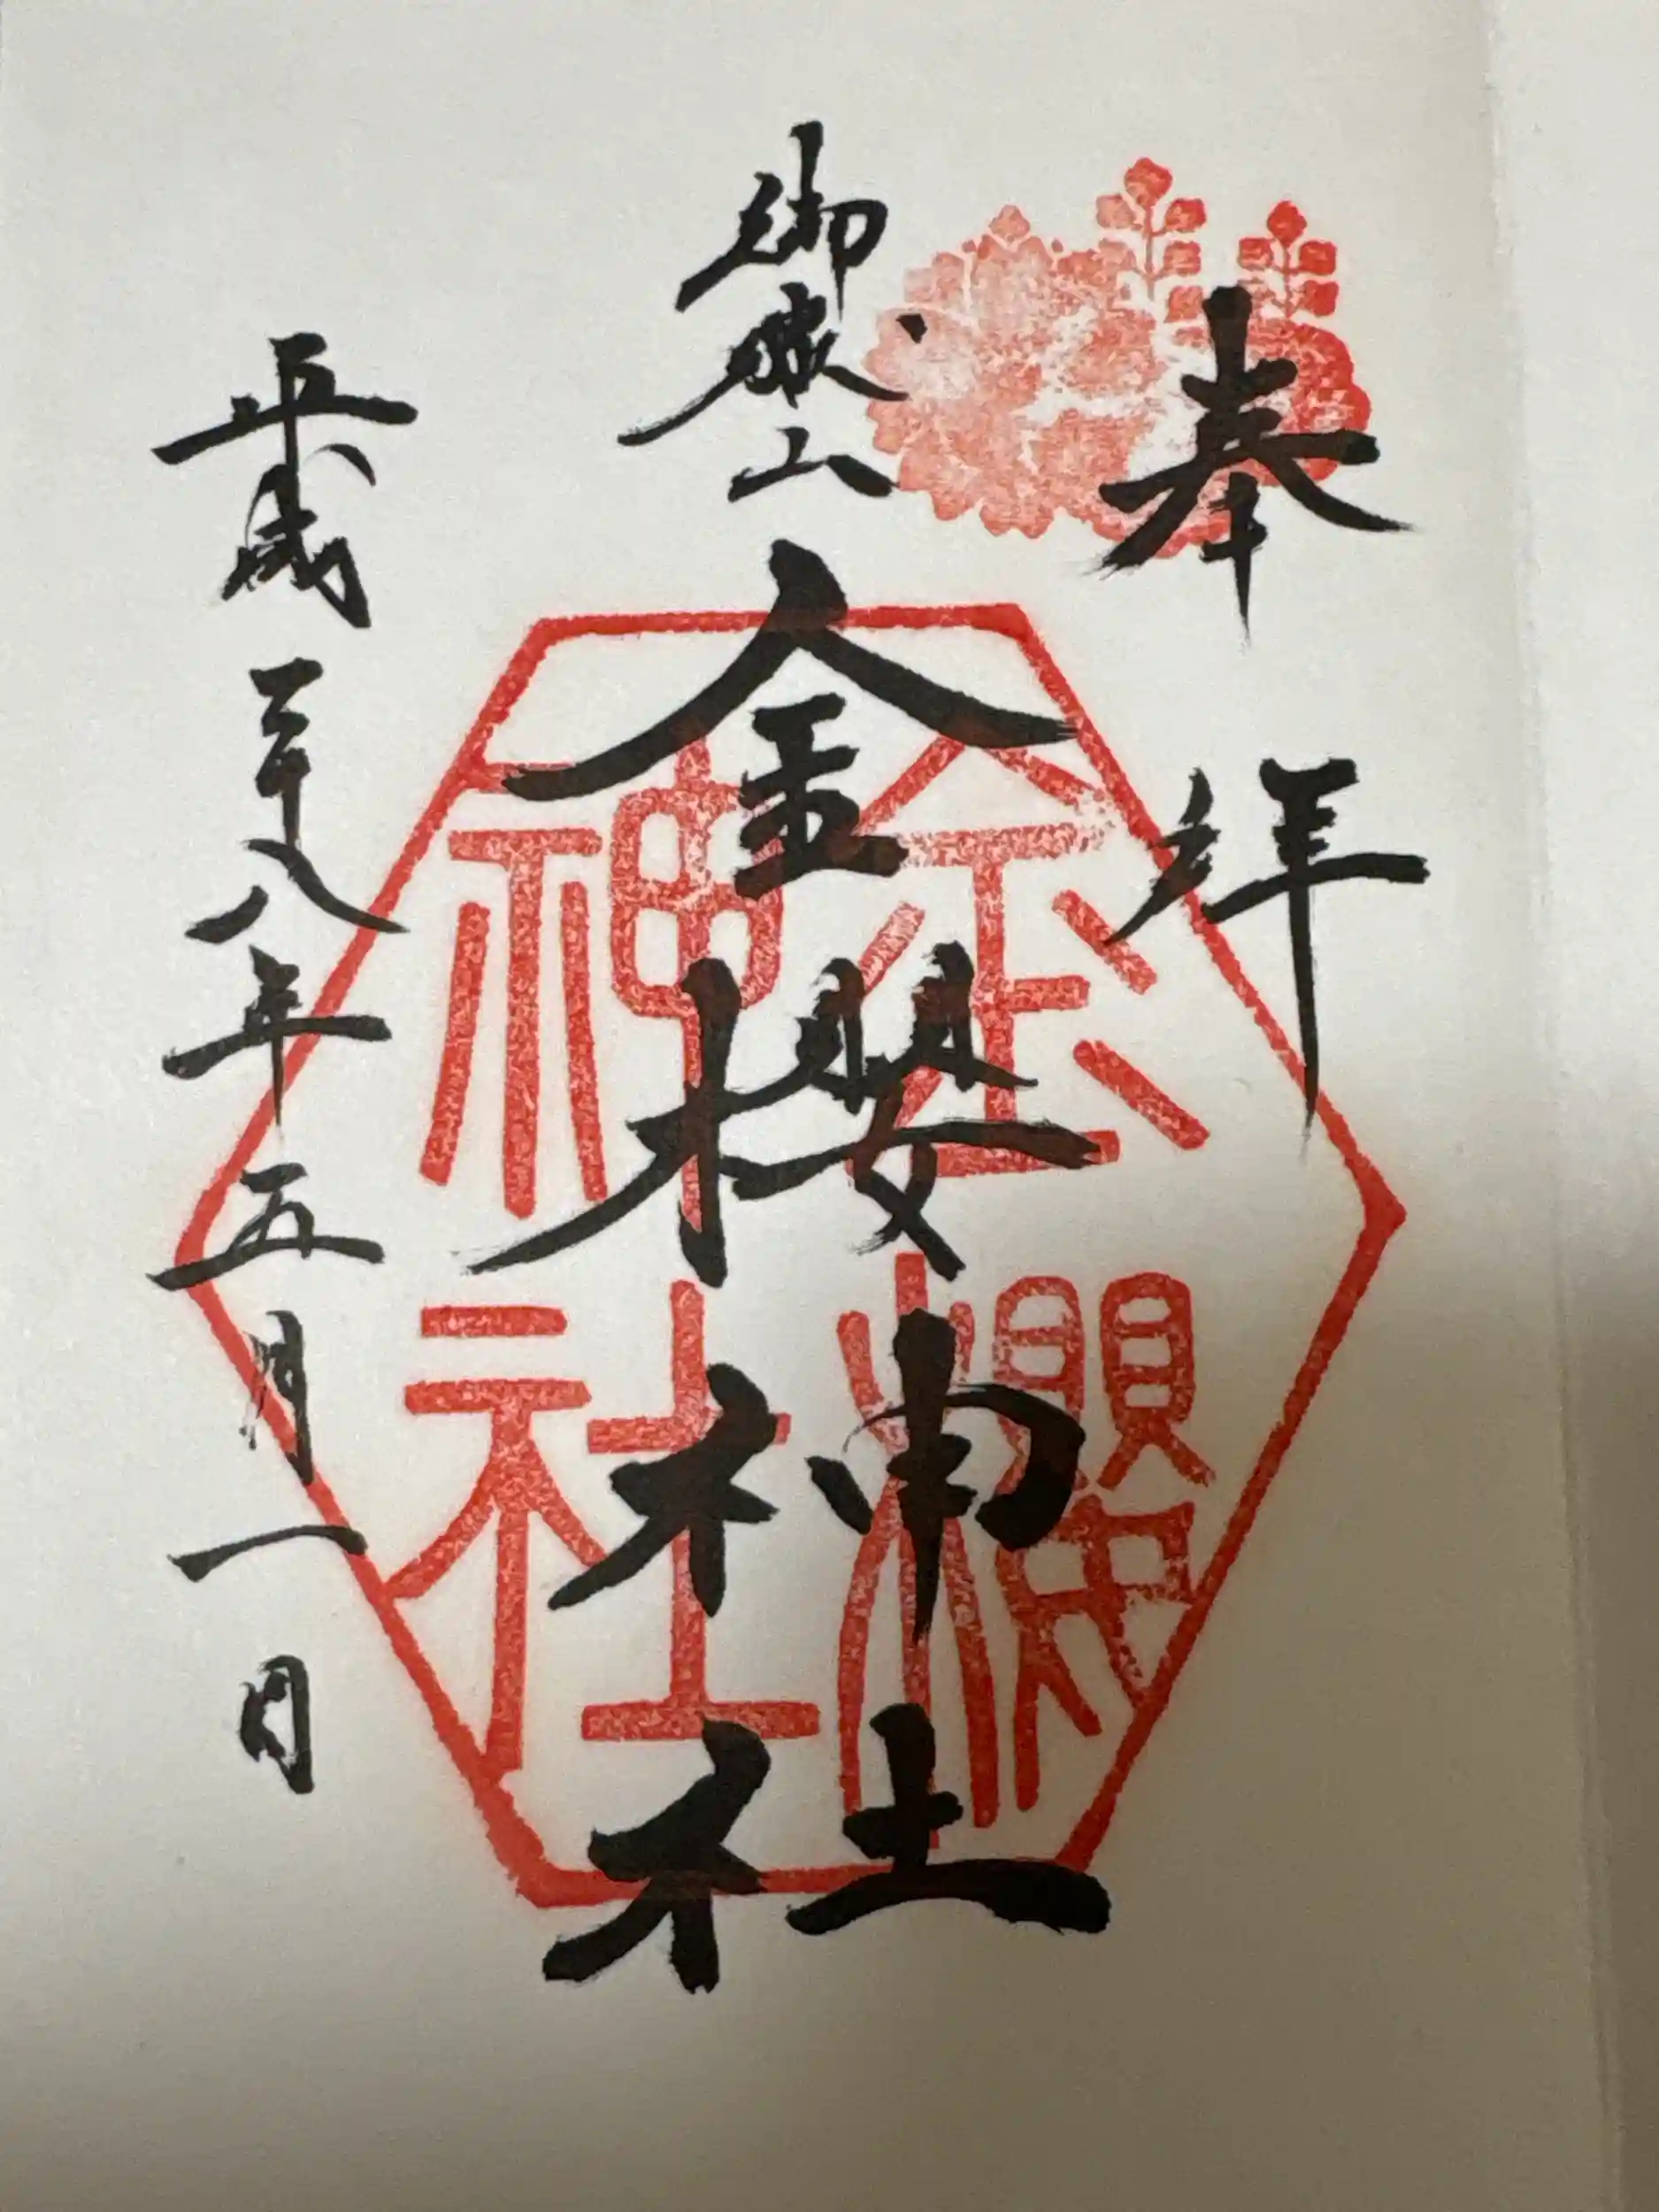 奉拝
御嶽山
金櫻神社
平成二十八年五月一日
金櫻神社